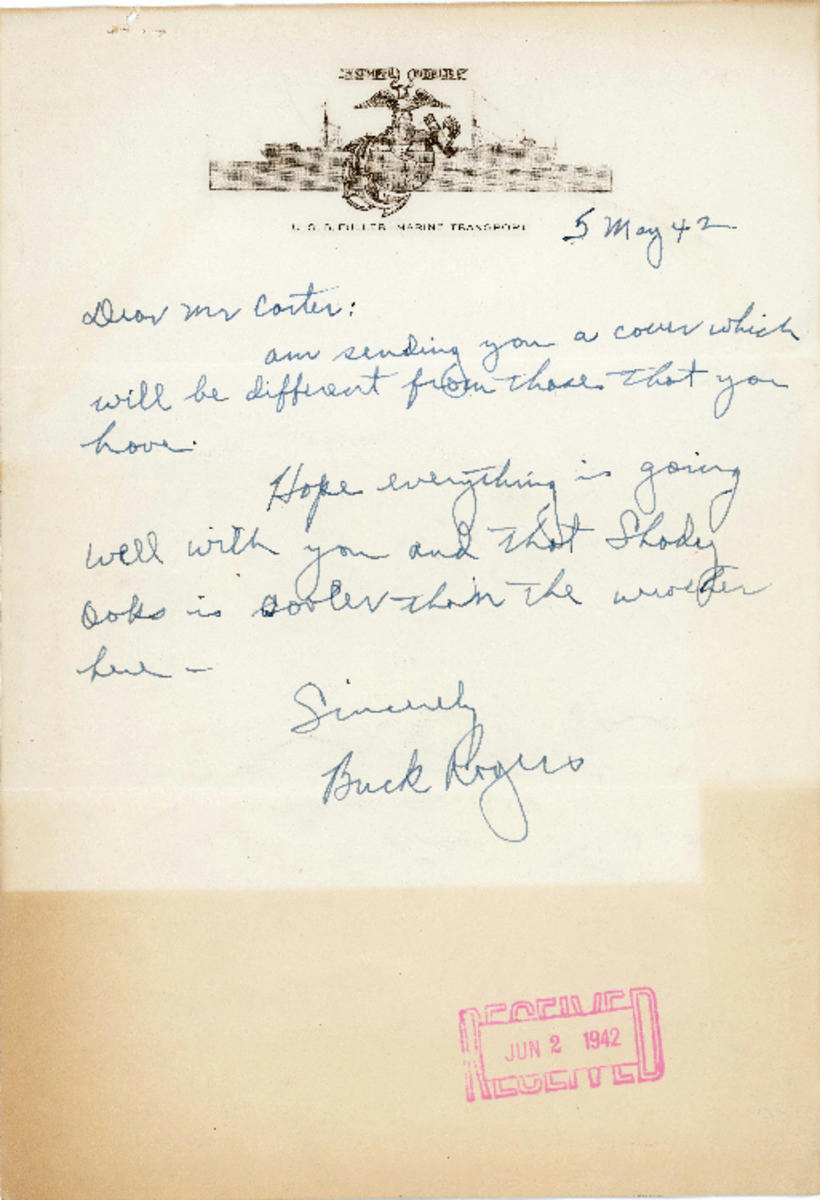 SEMPER FIDELIS
U. S. S. FULLER MARINE TRANSPORT
5 May 42
Dear Mr Carter:
am sending you a cover which
will be different from those that you
have.
Hope everything is going
well with you and that Shady
Oaks is cooler than the weather
here –
Sincerely
Buck Rogers
RECEIVED
JUN 2 1942
RECEIVED